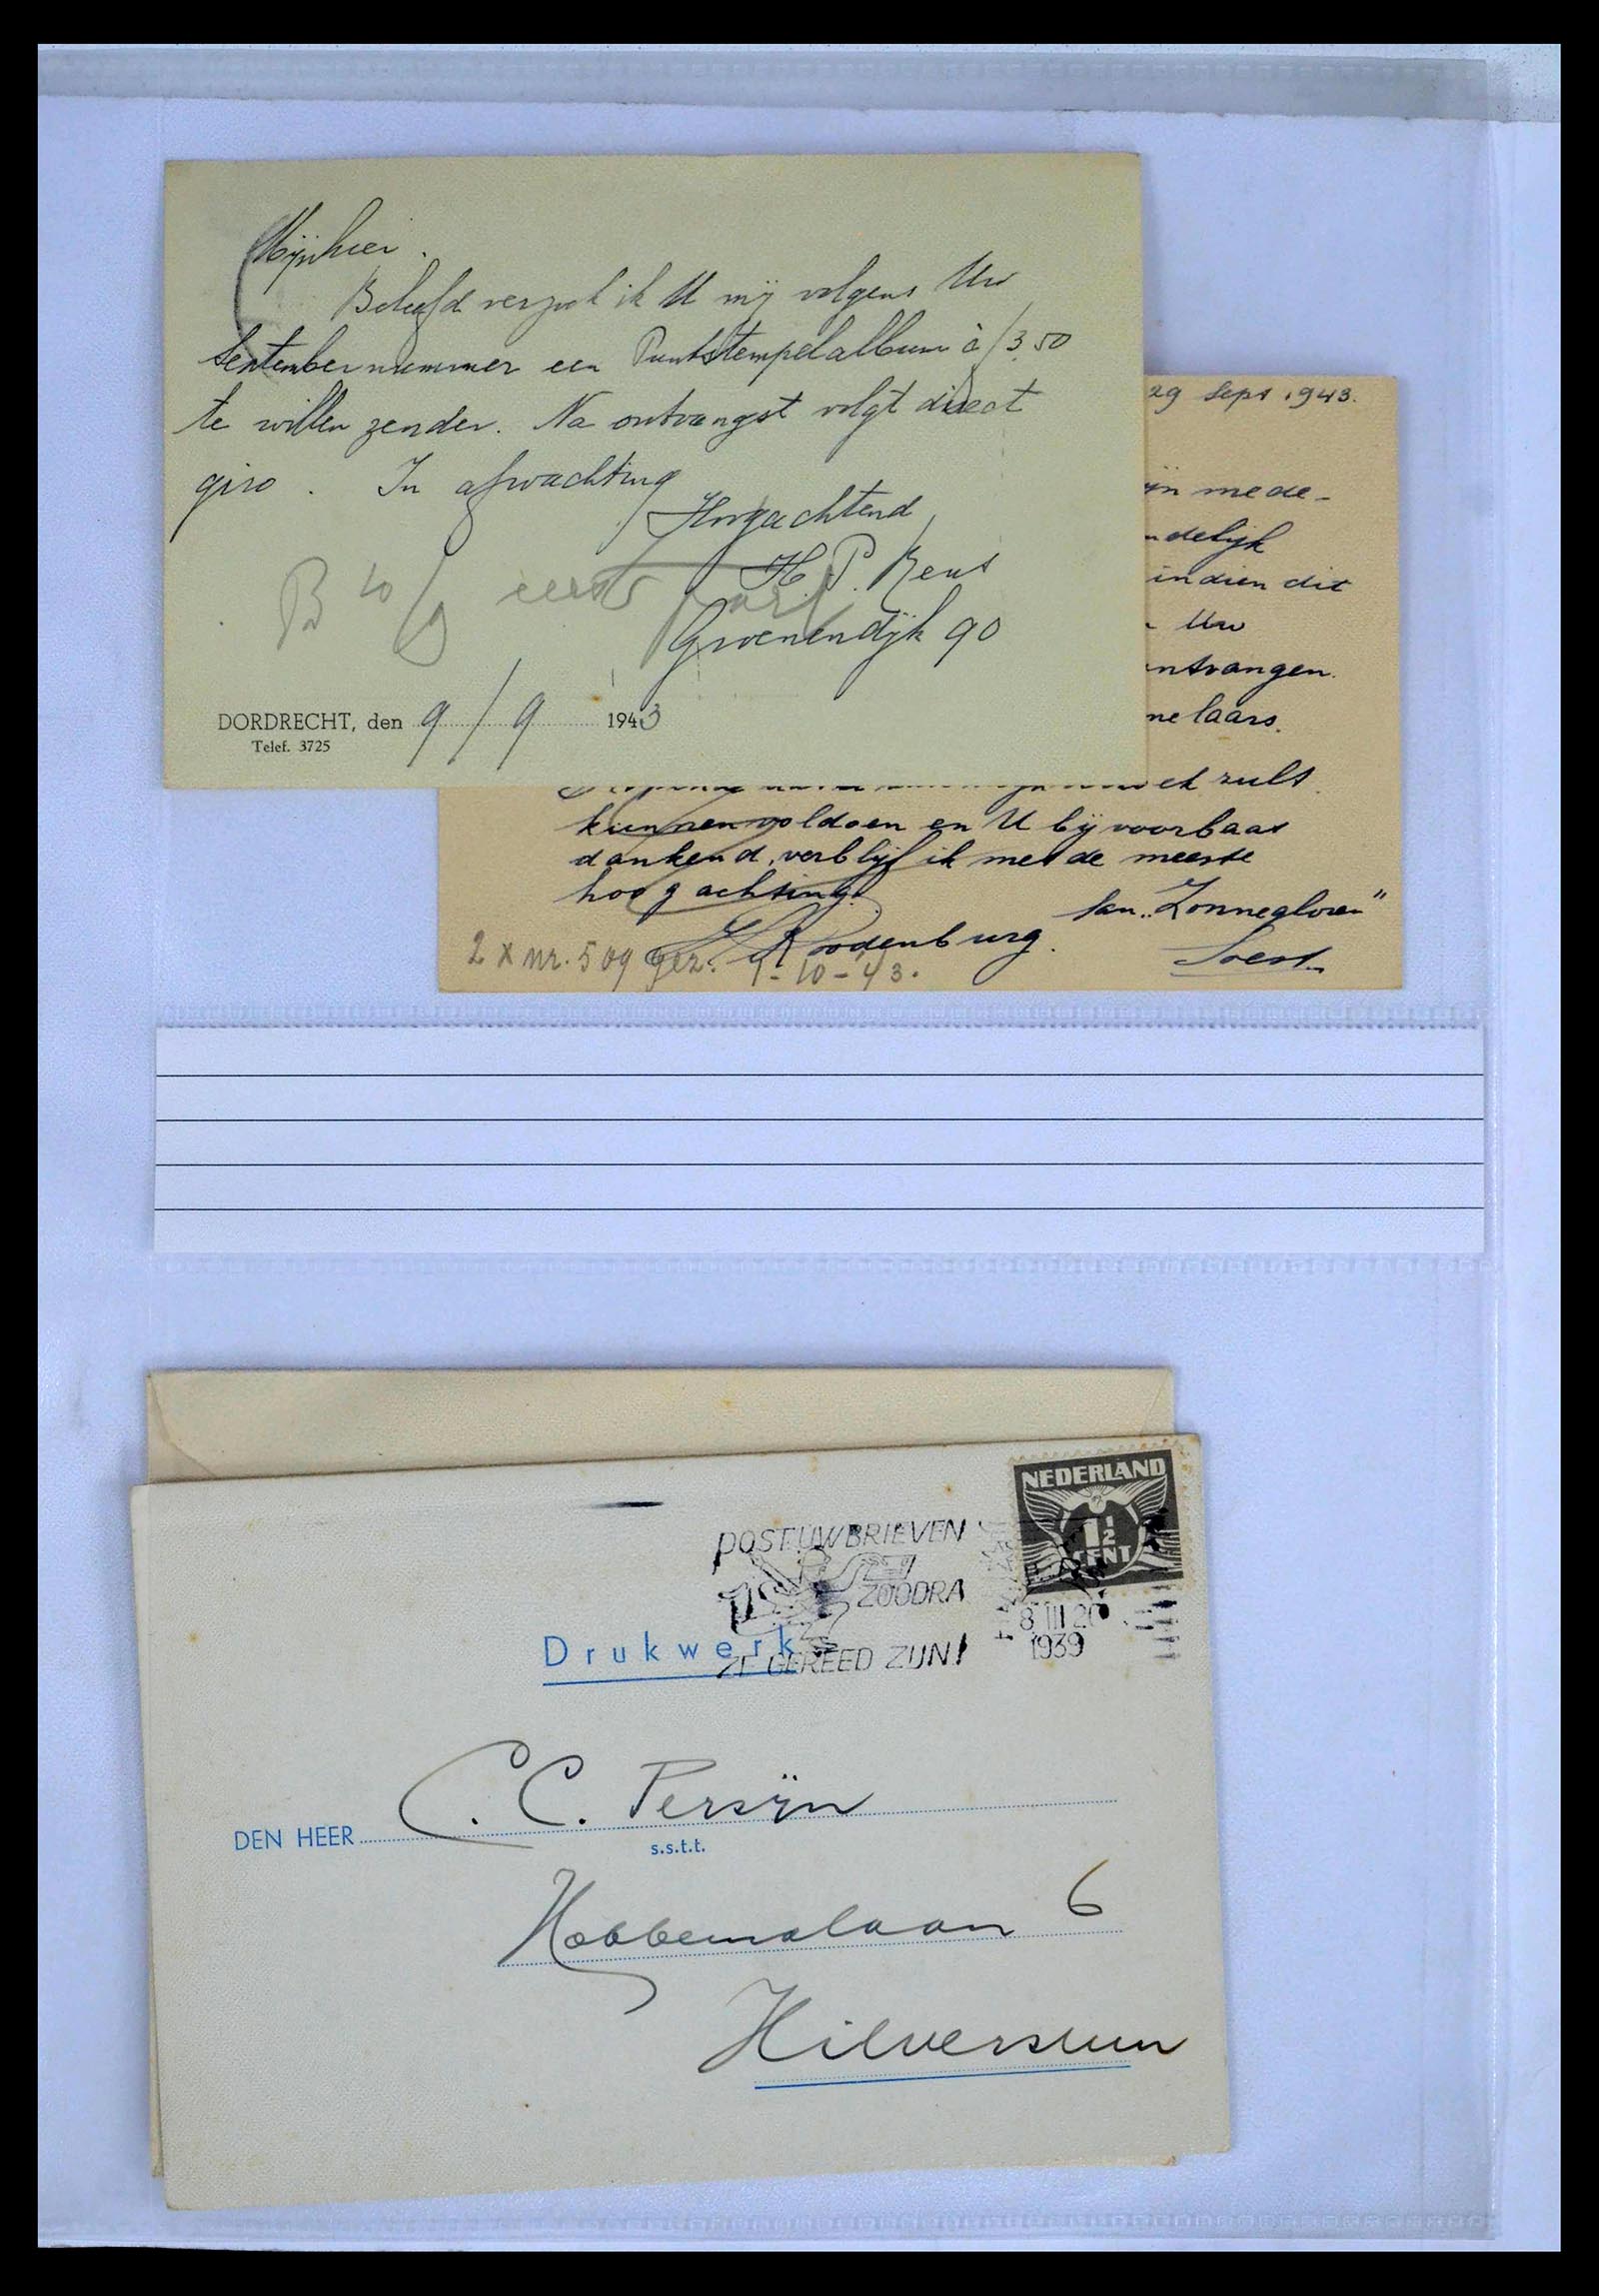 Mijnheer.
Beleefd verzoek ik U mij volgens Uw
Septembernummer een Puntstempelalbum à f 3.50
te willen zenden. Na ontvangst volgt direct
giro. In afwachting
Hoogachtend,
H. P.
Groenendijk 90
DORDRECHT, den 9/9 1943
Telef. 3725
29 Sept 1943.
ijn mede-
ndelijk
indien dit
Uw
ontvangen.
melaars.
zult
kunnen voldoen en U bij voorbaat
dankend, verblijf ik met de meeste
hoogachting.
San. "Zonnegloren"
Roodenburg.
Soest
2 x nr. 509 gez. 1-10-'43.
NEDERLAND
1½
CENT
POST UW BRIEVEN
ZOODRA
ZE GEREED ZIJN!
8 III 20
1939
Drukwerk
DEN HEER C. C. Persijn
s.s.t.t.
Hobbemalaan 6
Hilversum